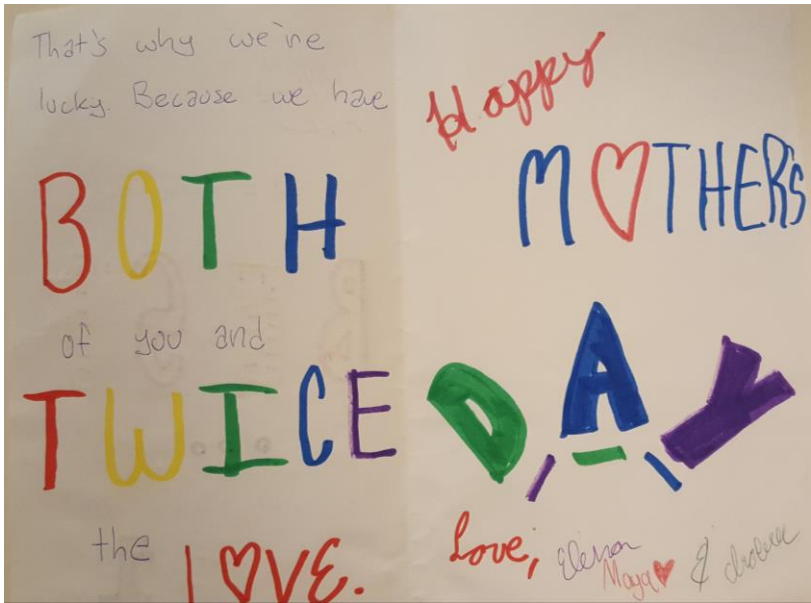 That's why we're
lucky. Because we have
BOTH
of you and
TWICE
the LOVE.
Happy
MOTHER'S
DAY
Love,
Maya &